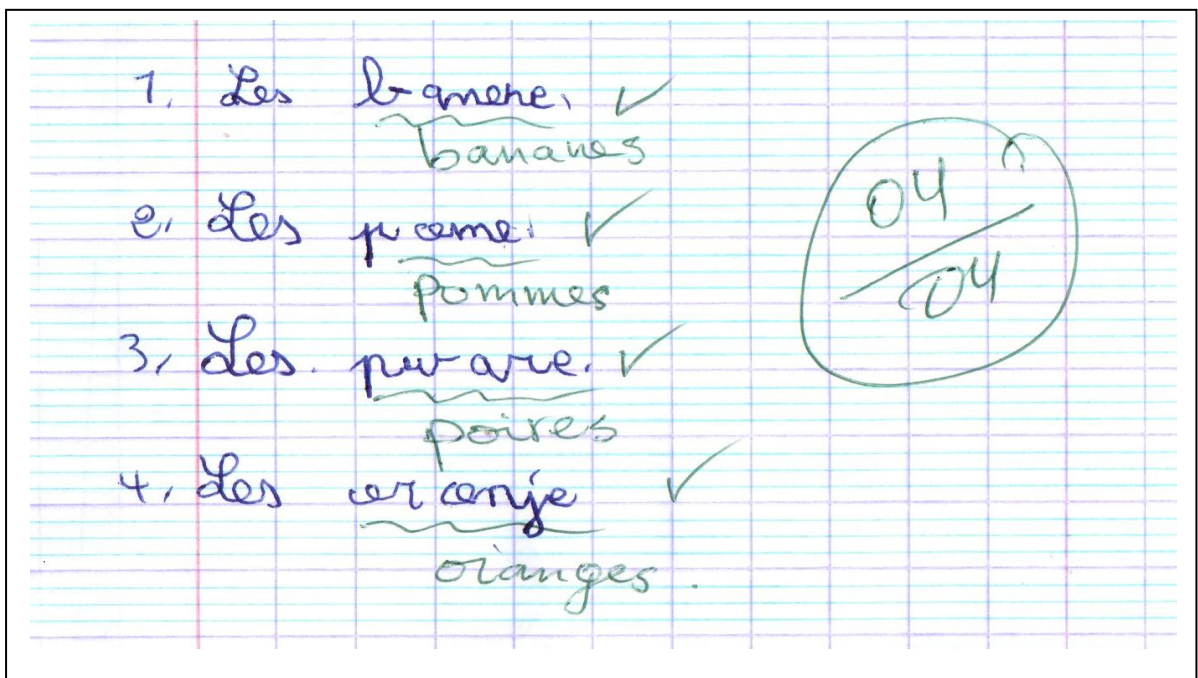 1. Les banene. ✓
bananes
2. Les pome. ✓
pommes
3. Les. puare. ✓
poires
4. Les oranje ✓
oranges.
04
04